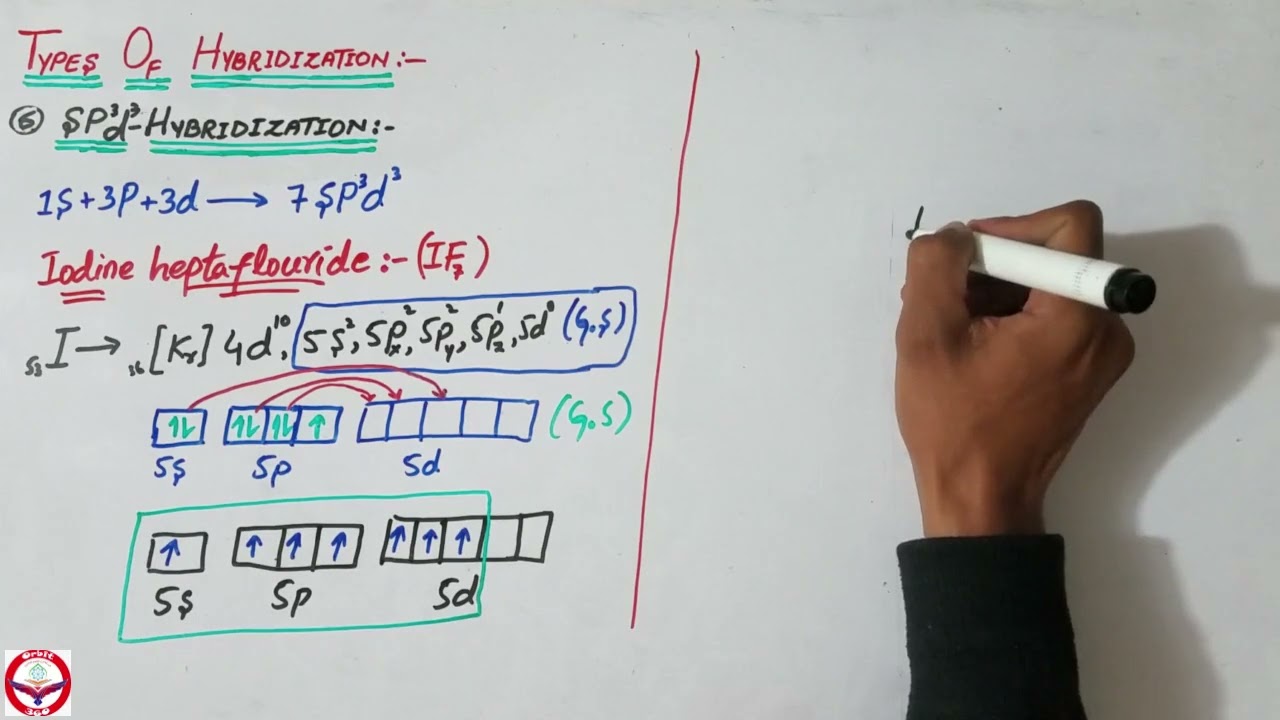 TYPES OF HYBRIDIZATION:-
⑥ SP³d³-HYBRIDIZATION:-
1S+3P+3d → 7 SP³d³
Iodine heptaflouride:- (IF₇)
₅₃I → ₃₆[Kr] 4d¹⁰, 5S², 5Pₓ², 5Pᵧ², 5P_z¹, 5d⁰ (G.S)
↑↓ ↑↓ ↑↓ ↑ (G.S)
5S 5P 5d
↑ ↑ ↑ ↑ ↑ ↑ ↑
5S 5P 5d
Orbit
360